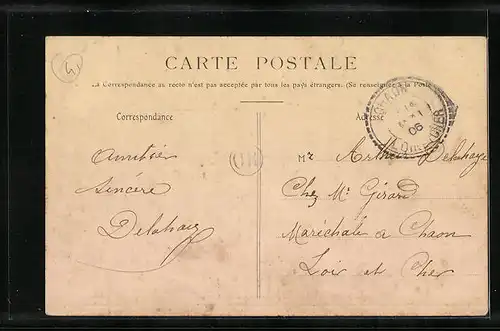 CARTE POSTALE
La Correspondance au recto n'est pas acceptée par tous les pays étrangers. (Se renseigner à la Poste
Correspondance
Adresse
CHAON
06
LOIR-ET-CHER
Amitié
Sincère
Delahaye
Mr Arthur Delahaye
Chez Mr Girard
Maréchale a Chaon
Loir et Cher